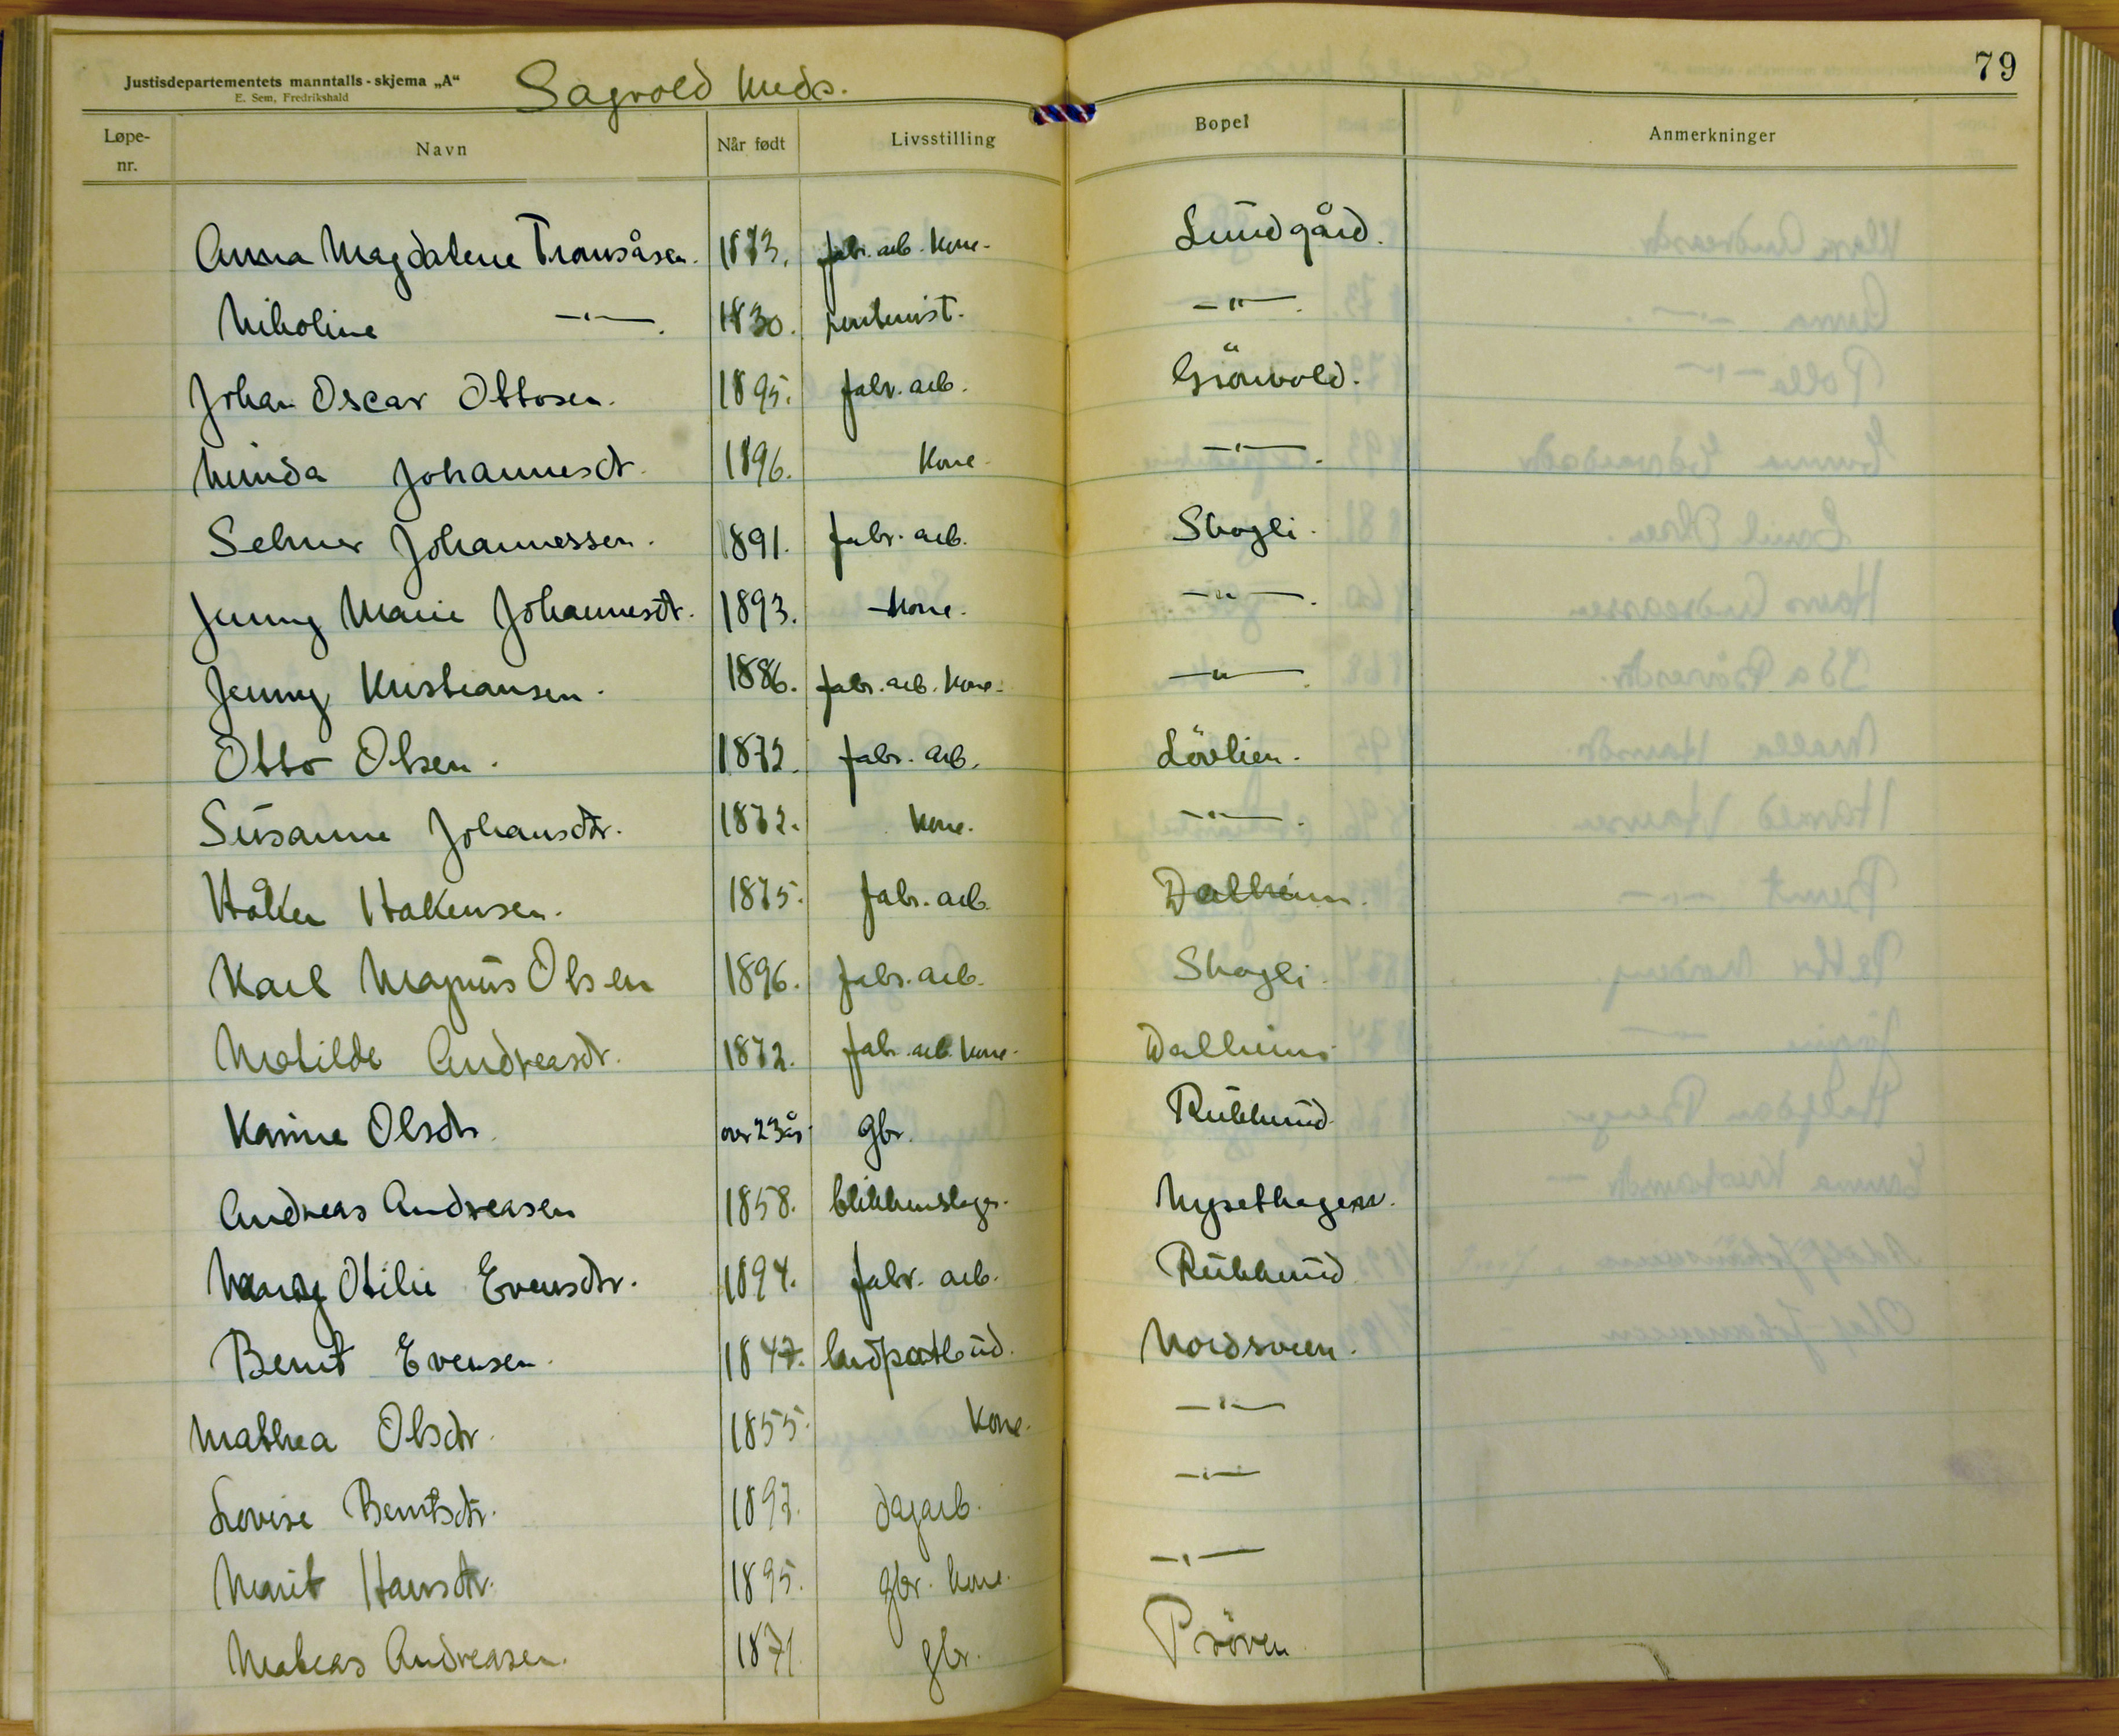 79
Justisdepartementets manntalls-skjema „A“
E. Sem, Fredrikshald
Sagvold
Løpe-nr. Navn Når født Livsstilling Bopel Anmerkninger
Anna Magdalene Tronsåsen. 1873. fabr. arb. kone. Lundgård.
Nikoline —"—. 1830. rentenist. —"—.
Johan Oscar Ottosen. 1895. fabr. arb. Grönvold.
Minda Johannesdt. 1896. Kone. —"—.
Selmer Johannessen. 1891. fabr. arb. Skogli.
Jenny Marie Johannesdt. 1893. Kone. —"—.
Jenny Kristiansen. 1886. fabr. arb. kone. —"—.
Otto Olsen. 1872. fabr. arb. Lövlien.
Susanne Johansdtr. 1872. Kone. —"—.
Håken Hakensen. 1875. fabr. arb. Dalheim.
Karl Magnus Olsen 1896. fabr. arb. Skogli.
Matilde Andreasdt. 1872. fabr. arb. kone. Dalheim
Karine Olsdtr over 23 år gbr. Rükkund
Andreas Andreasen 1858. blikkenslager. Nysethagen.
Otilie Evensdtr. 1894. fabr. arb. Rükkund
Bernt Evensen. 1847. landpostbud. Nordsveen.
Mathea Olsdtr. 1855. Kone. —"—
Lovise Berntsdtr. 1897. dagarb. —"—
Marit Hansdtr. 1895. gbr. kone. —"—
Mateas Andreasen. 1871. gbr. Pröven.